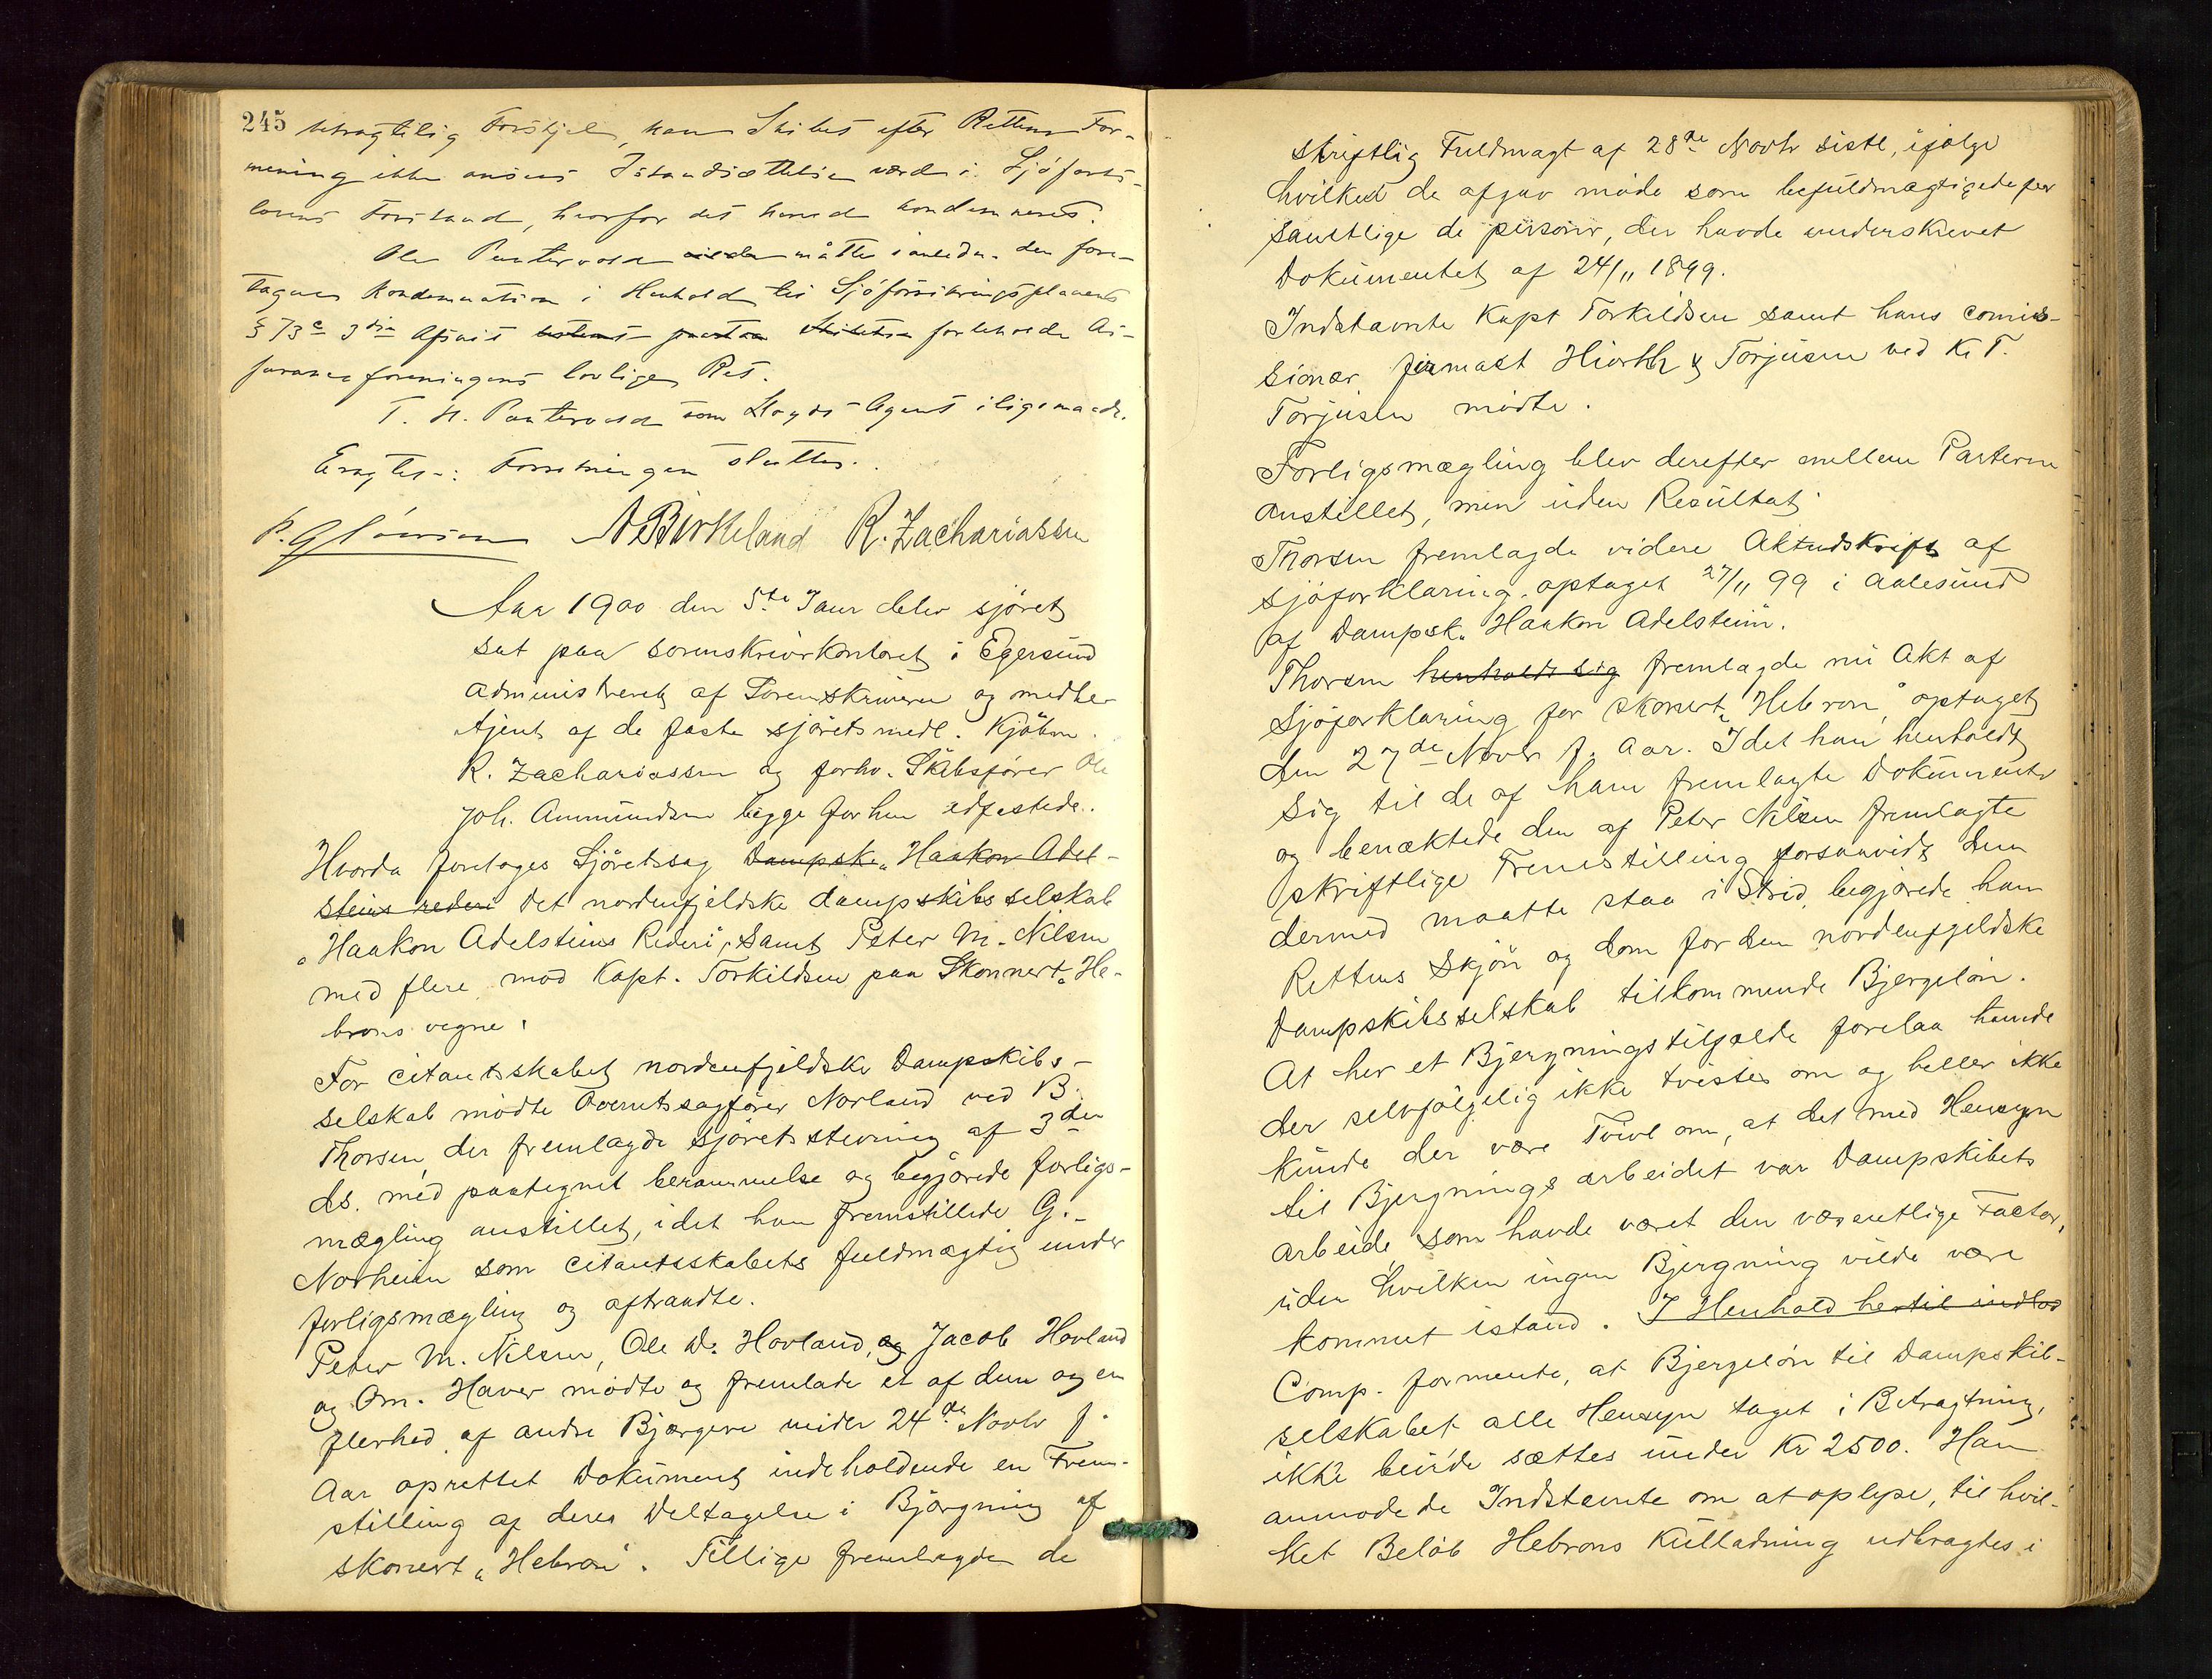 245
betragtelig Forskjel, kan Skibet efter Rettens For-
mening ikke ansees Istandsættelsen værd i Sjöfarts-
lovens Forstand, hvorfor det herved kondemneres.
Ole Puntervold maatte i anledn. den fore-
tagne Kondemnation i Henhold til Sjöforsikringsplanens
§ 73 3die Afsnit forbeholde As-
suranceforeningens lovlige Ret.
T. H. Puntervold som Lloyds-Agent iligemaade.
Eragtes: Forretningen sluttes.
N Birkeland R. Zachariassen
Aar 1900 den 5te Janr blev sjöret
sat paa sorenskriverkontoret i Egersund
administreret af Sorenskriveren og medbe-
tjent af de faste sjöretsmedl. Kjöbm.
R. Zachariassen og forhv. Skibsförer Ole
Joh. Ammundsen begge forhen edfæstede.
Hvorda foretoges Sjöretssag Dampsk. „Haakon Adel-
steins rederi Det nordenfjeldske dampskibsselskab
„Haakon Adelsteins Rederi", samt Peter M. Nilsen
med flere mod Kapt. Torkildsen paa Skonnert „He-
brons vegne:
For citantskabet nordenfjeldske Dampskibs-
selskab mödte Overretssagförer Norland ved B.
Thorsen, der fremlagde sjöretsstevning af 3den
ds. med paategnet berammelse og begjærede forligs-
mægling anstillet, idet han fremstillede G.
Norheim som citantsskabets fuldmægtig under
forligsmægling og aftraadte.
Peter M. Nilsen, Ole D. Hovland, og Jacob Hovland
og Om. Haver mödte og fremlade et af dem og en
flerhed af andre Bjærgere under 24de Novbr f.
Aar oprettet Dokument indeholdende en Frem-
stilling af deres Deltagelse i Bjærgning af
skonert „Hebron". Tillige fremlagde de
skriftlig Fuldmagt af 28de Novbr sistl, ifölge
hvilken de afgav möde som befuldmægtigede for
samtlige de personer, der havde underskrevet
Dokumentet af 24/11 1899.
Indstævnte Kapt Torkildsen samt hans comis-
sionær firmaet Hiorth & Torjusen ved K. T.
Torjusen mödte.
Forligsmægling blev derefter mellem Parterne
anstillet, men uden Resultat.
Thorsen fremlagde videre Aktudskrift af
sjöforklaring optaget 27/11 99 i Aalesund
af Dampsk. Haakon Adelstein.
Thorsen henholdt sig fremlagde nu Akt af
Sjöforklaring for skonert „Hebron" optaget
den 27de Novbr f. Aar. Idet han henholdt
sig til de af ham fremlagte Dokumenter
og benægtede den af Peter Nilsen fremlagte
skriftlige Fremstilling forsaavidt den
dermed maatte staa i Strid, begjærede han
Rettens Skjön og dom for den nordenfjeldske
Dampskibsselskab tilkommende Bjergelön.
At her et Bjergningstilfælde forelaa kunde
der selvfölgelig ikke tvistes om og heller ikke
kunde der være Tvivl om, at det med Hensyn
til Bjergningsarbeidet var Dampskibets
arbeide som havde været den væsentlige Factor,
uden hvilken ingen Bjergning vilde være
kommet istand. I Henhold hertil indlod
Comp. formente, at Bjergelön til Dampskib-
selskabet alle Hensyn taget i Betragtning,
ikke burde sættes under Kr 2500. Han
anmodede Indstevnte om at oplyse, til hvil-
ket Belöb Hebrons Kulladning udbragtes i